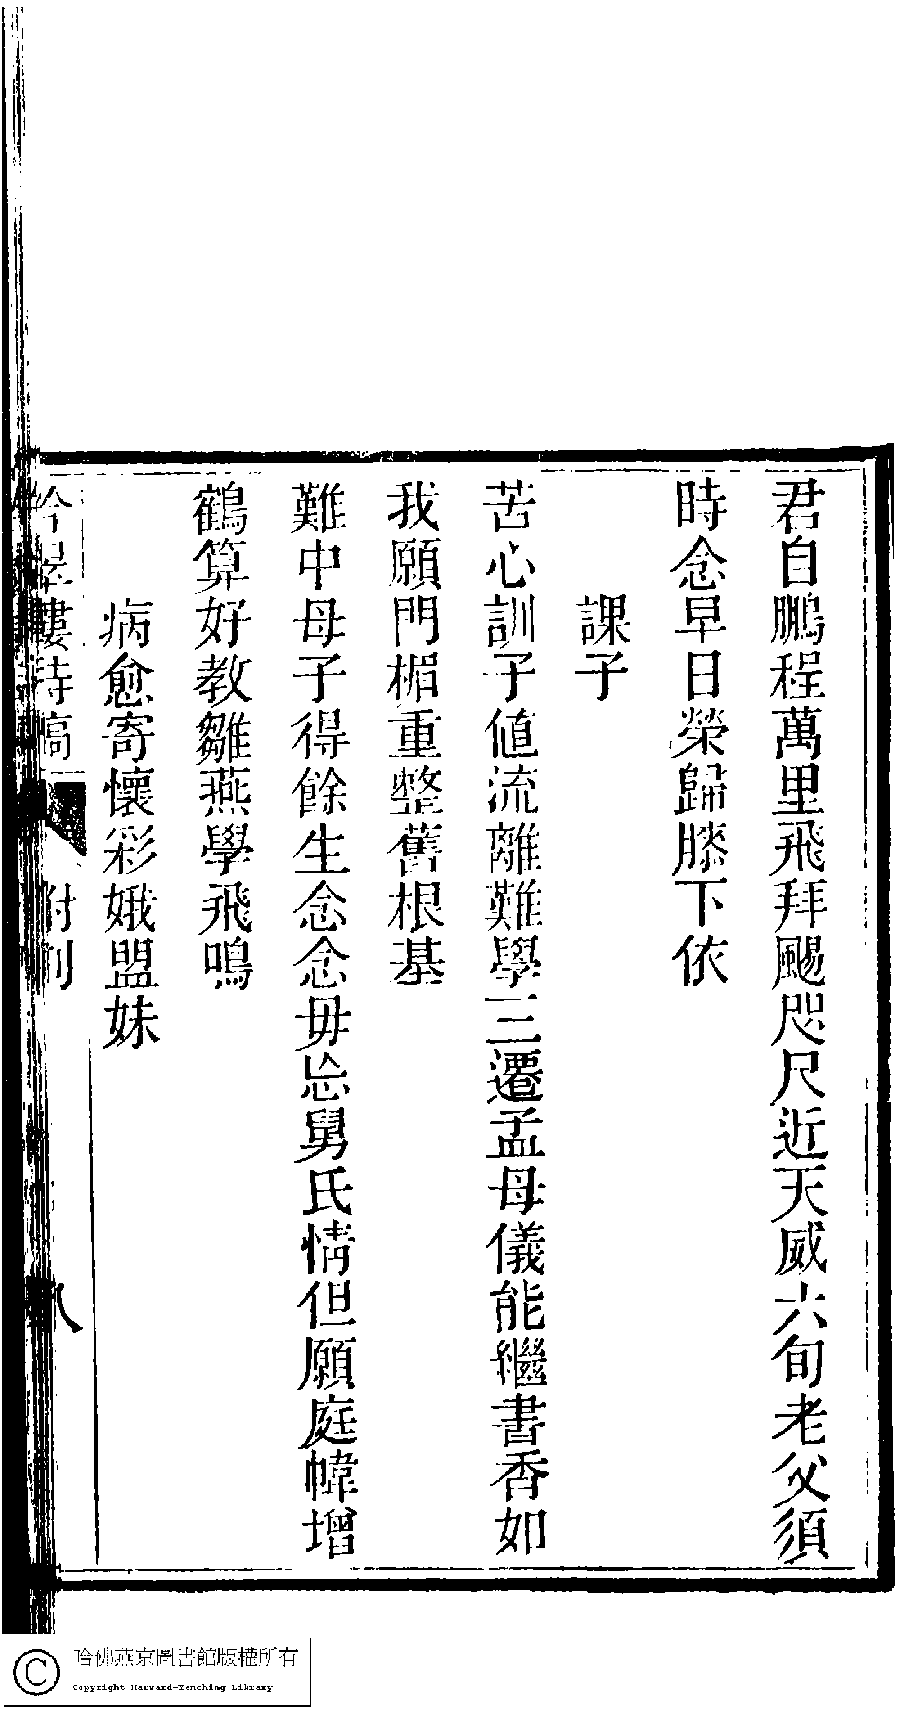 君自鵬程萬里飛拜颺咫尺近天威六旬老父須
時念早日榮歸膝下依
課子
苦心訓子値流離難學三遷孟母儀能繼書香如
我願門楣重整舊根基
難中母子得餘生念念毋忘舅氏情但願庭幃增
鶴算好教雛燕學飛鳴
病愈寄懷彩娥盟妹
樓詩稿
附刊
八
哈佛燕京圖書館版權所有
Copyright Harvard-Yenching Library